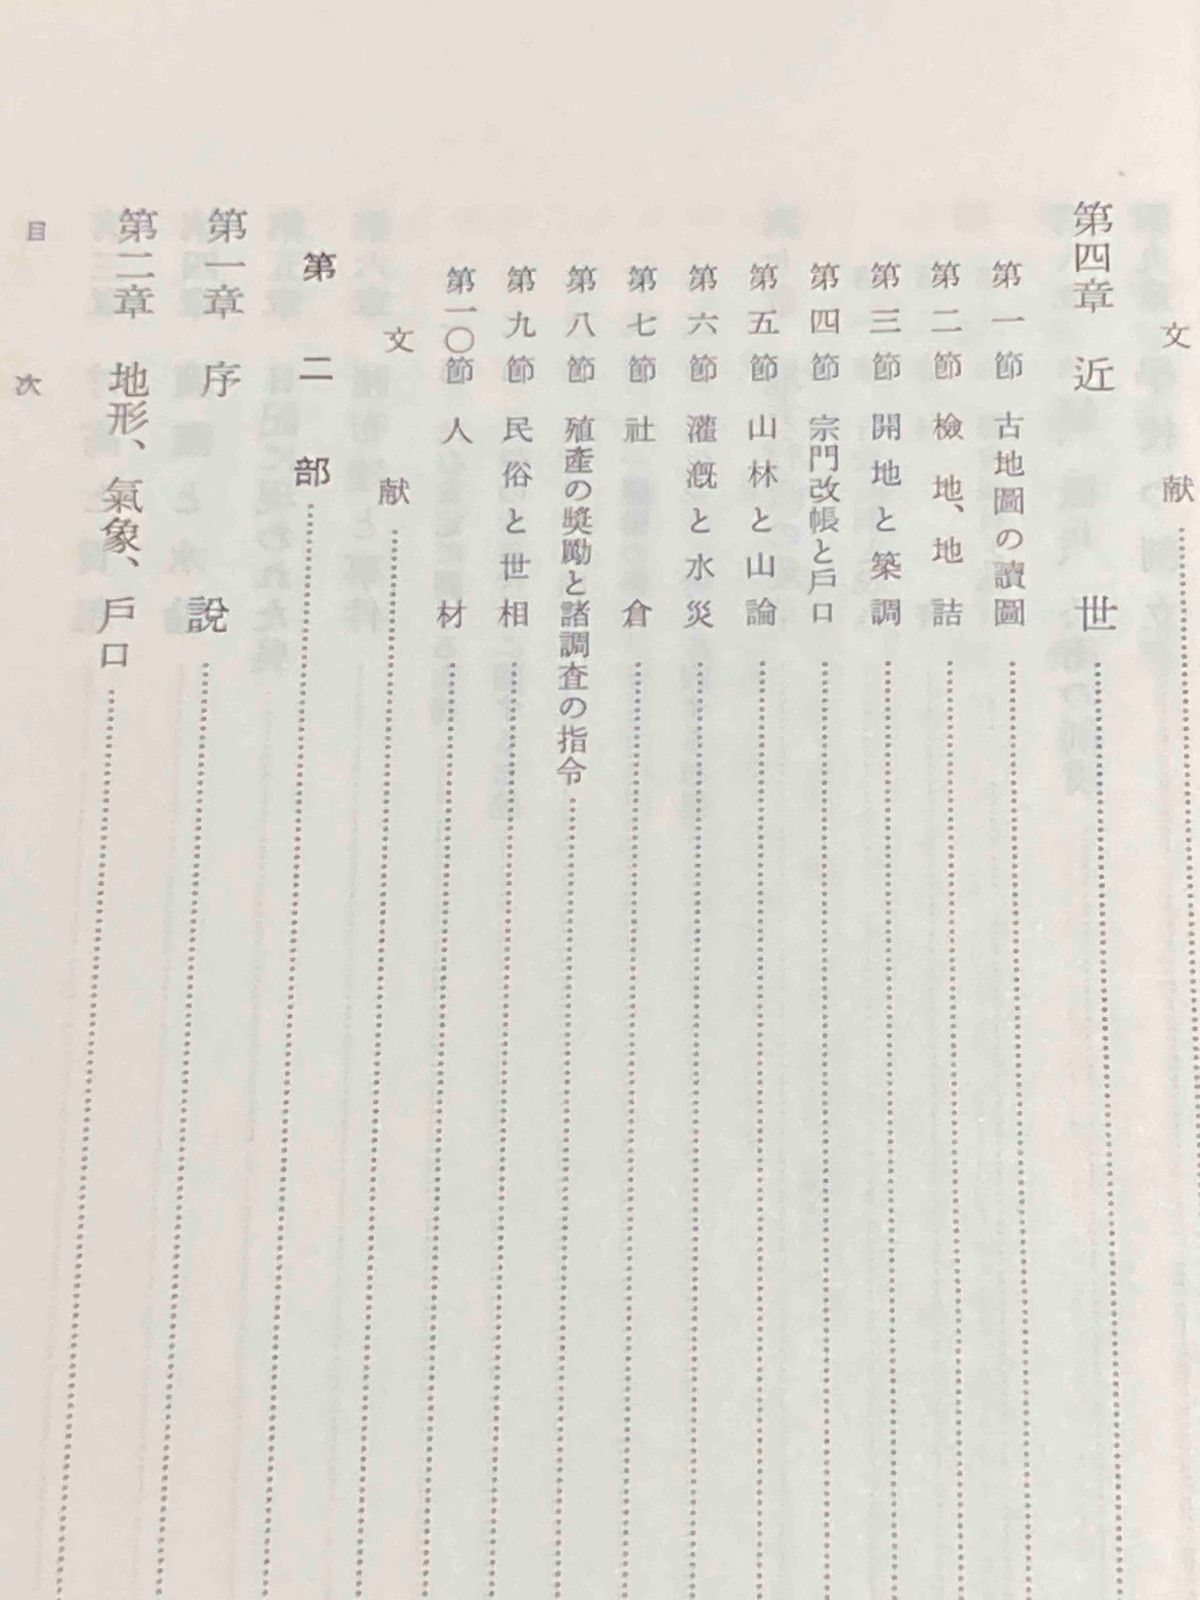 文献
第四章 近世
第一節 古地圖の讀圖
第二節 檢地、地詰
第三節 開地と築調
第四節 宗門改帳と戶口
第五節 山林と山論
第六節 灌漑と水災
第七節 社倉
第八節 殖產の奬勵と諸調査の指令
第九節 民俗と世相
第一〇節 人材
文献
第二部
第一章 序說
第二章 地形、氣象、戶口
目次